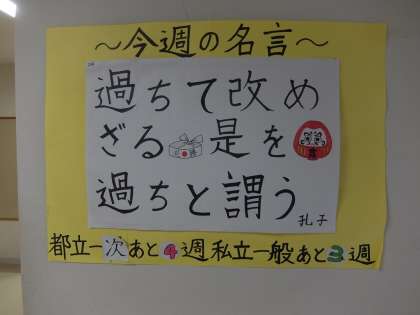 ～今週の名言～
過ちて改め
ざる是を
過ちと謂う
孔子
都立一次あと4週私立一般あと3週